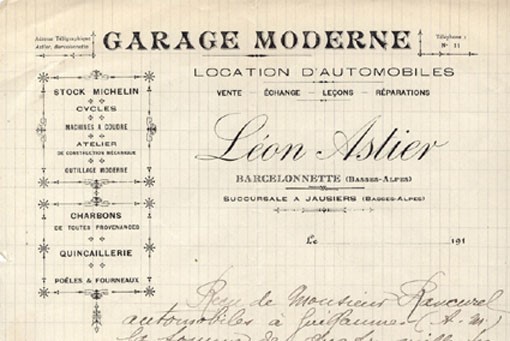 Adresse Télégraphique
Astier, Barcelonnette
GARAGE MODERNE
Téléphone :
N° 11
LOCATION D'AUTOMOBILES
VENTE — ÉCHANGE — LEÇONS — RÉPARATIONS
Léon Astier
BARCELONNETTE (BASSES-ALPES)
SUCCURSALE A JAUSIERS (BASSES-ALPES)
STOCK MICHELIN
CYCLES
MACHINES A COUDRE
ATELIER
DE CONSTRUCTION MÉCANIQUE
OUTILLAGE MODERNE
CHARBONS
DE TOUTES PROVENANCES
QUINCAILLERIE
POÊLES & FOURNEAUX
Le 191
Reçu de Monsieur Rancurel
automobiles à Guillaumes (A. M.)
la somme de